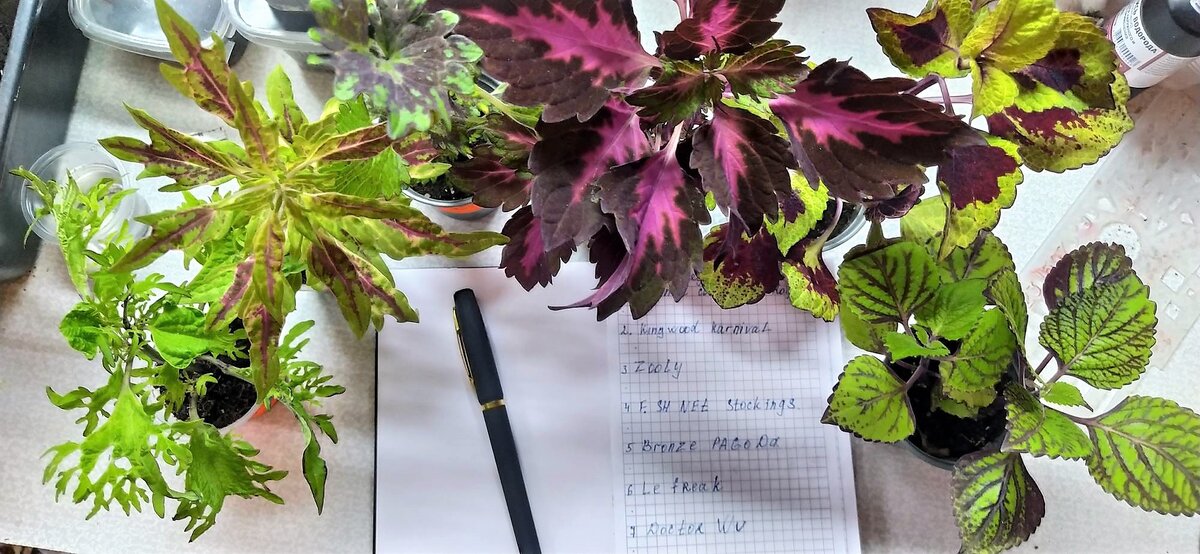 ВОДОРОДА
2. Kingwood Karnival
3 Zooly
4 F. SH NEt Stockings
5 Bronze PAGoDa
6 Le freak
7 Doctor WU